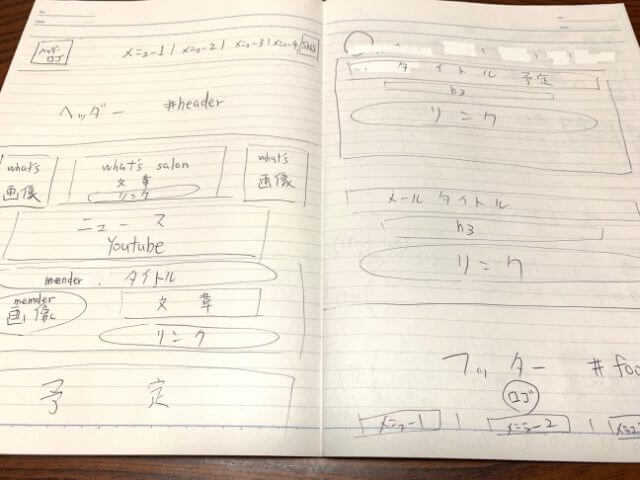 ヘッダーロゴ
メニュー1 | メニュー2 | メニュー3 | メニュー4 SNS
ヘッダー #header
what's
画像
what's salon
文章
リンク
what's
画像
ニュース
Youtube
member . タイトル
memder
画像
文章
リンク
予定
タイトル 予定
h3
リンク
メールタイトル
h3
リンク
フッター #foo
ロゴ
メニュー1 | メニュー2 |